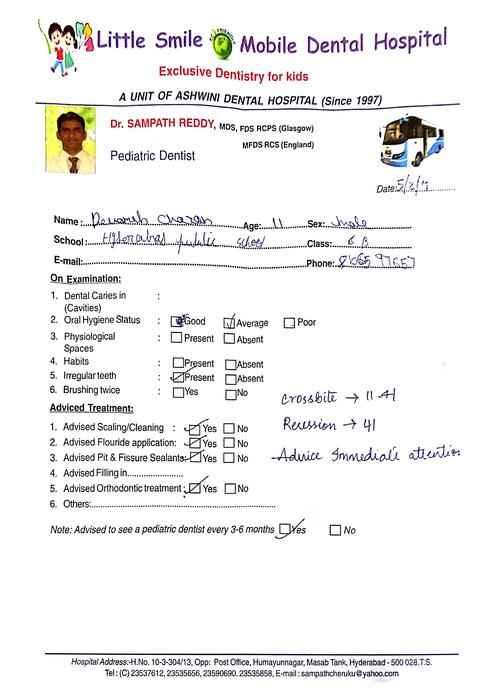 Little Smile Mobile Dental Hospital
Exclusive Dentistry for kids
A UNIT OF ASHWINI DENTAL HOSPITAL (Since 1997)
Dr. SAMPATH REDDY, MDS, FDS RCPS (Glasgow)
MFDS RCS (England)
Pediatric Dentist
Date:
Name: Charan Age: 11 Sex: Male
School: Hyderabad public school Class: 6 B
E-mail: Phone:
On Examination:
1. Dental Caries in :
(Cavities)
2. Oral Hygiene Status : Good Average Poor
3. Physiological : Present Absent
Spaces
4. Habits : Present Absent
5. Irregular teeth : Present Absent
6. Brushing twice : Yes No
Crossbite → 11 41
Adviced Treatment:
1. Advised Scaling/Cleaning : Yes No
Recession → 41
2. Advised Flouride application: Yes No
3. Advised Pit & Fissure Sealants: Yes No
Advice Immediate attention
4. Advised Filling in
5. Advised Orthodontic treatment : Yes No
6. Others:
Note: Advised to see a pediatric dentist every 3-6 months Yes No
Hospital Address:-H.No. 10-3-304/13, Opp: Post Office, Humayunnagar, Masab Tank, Hyderabad - 500 028.T.S.
Tel: (C) 23537612, 23535656, 23590690. 23535858, E-mail : sampathcheruku@yahoo.com